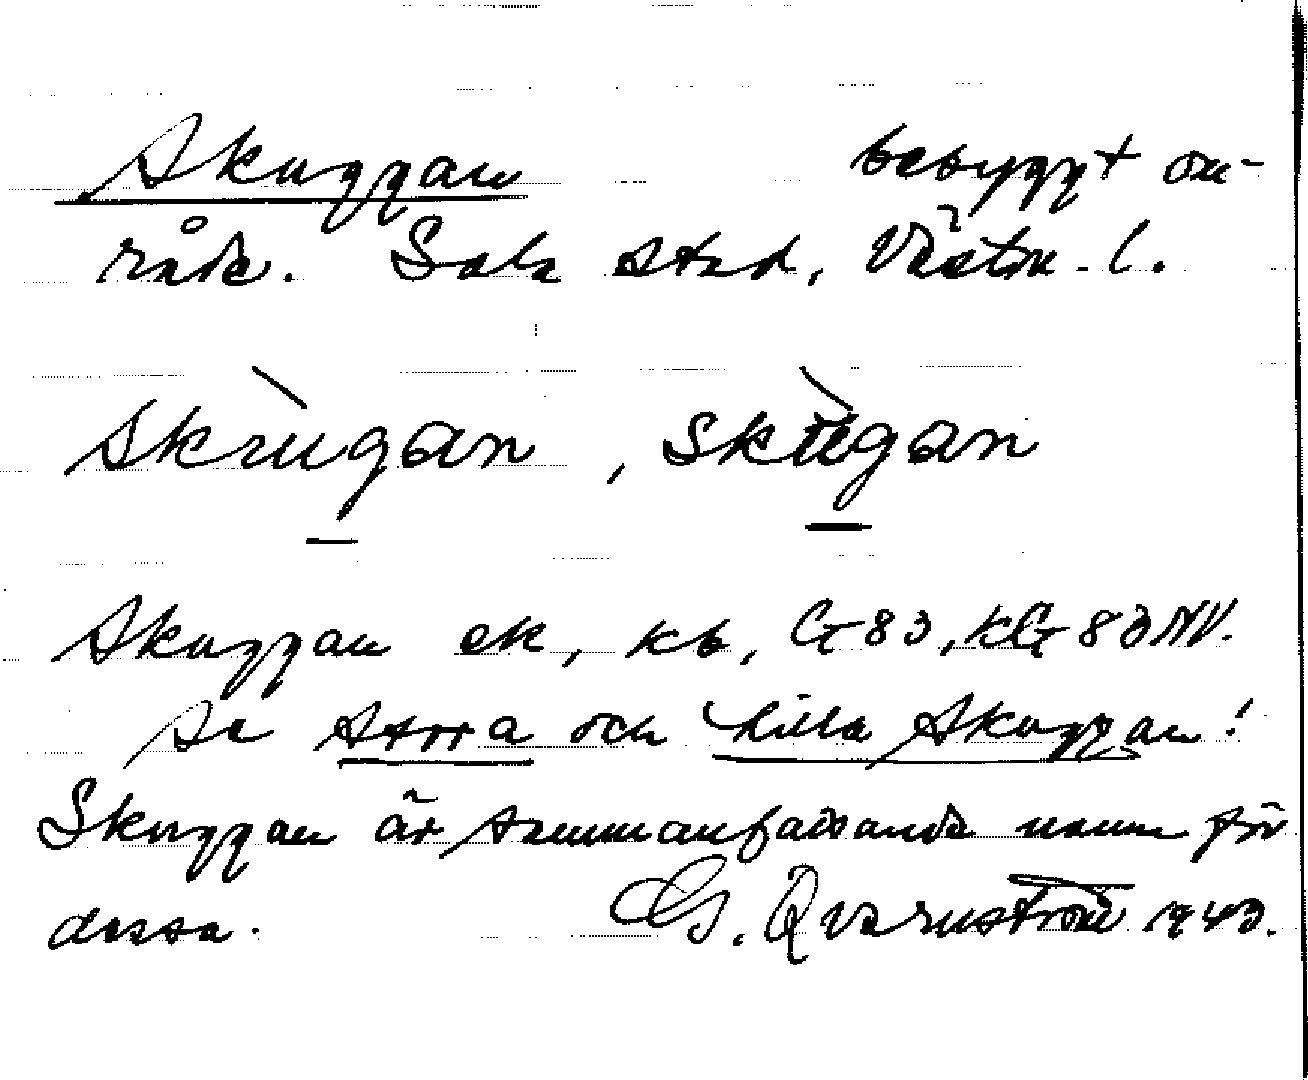 Skuggan bebyggt om-
råde. Sala stad, Västm. l.
skrùgan, skùgan
Skuggan ek, kb, G83, kG83NV.
Se Stora och Lilla Skuggan!
Skuggan är sammanfattande namn för
dessa. G. Qvarnström